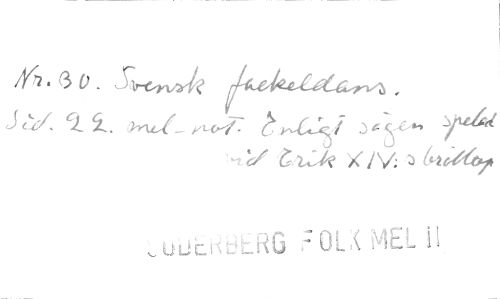 Nr. 30. Svensk fackeldans.
Sid. 22. mel-not. Enligt sägen spelad
vid Erik XIV:s bröllop
SÖDERBERG FOLK MEL II